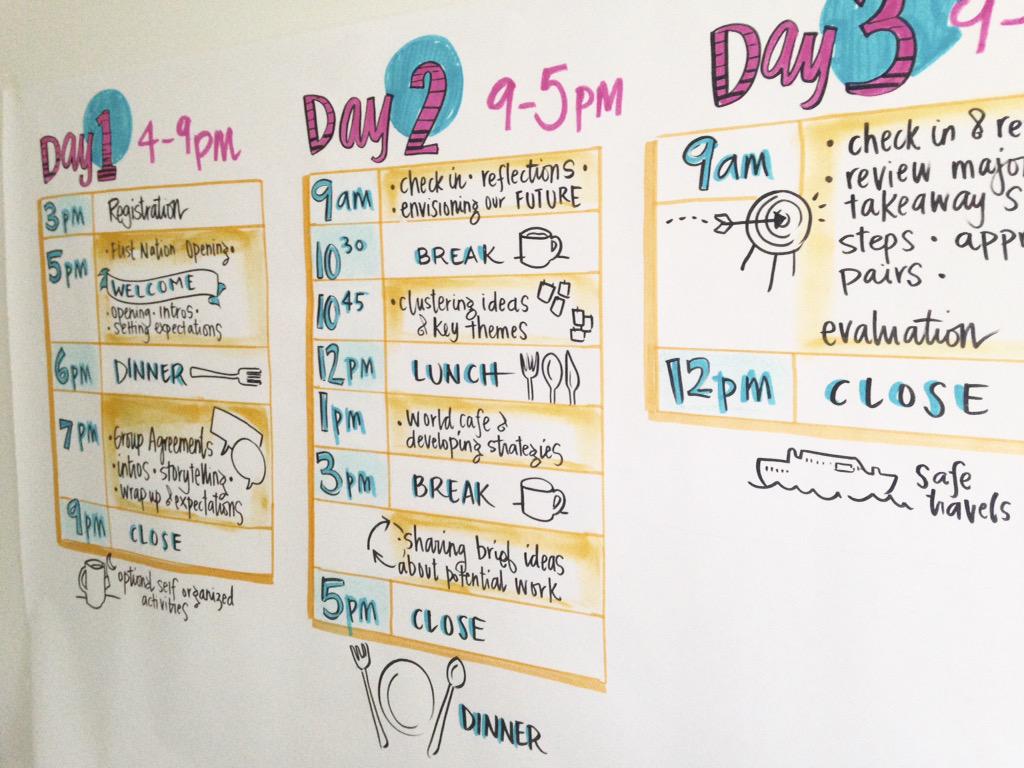 Day 1 4-9pm
3pm Registration
5pm • First Nation Opening •
WELCOME
• opening • intros •
• setting expectations
6pm DINNER
7pm • Group Agreements
• intros • storytelling •
• wrap up & expectations
9pm CLOSE
optional self organized
activities
Day 2 9-5pm
9am • check in • reflections •
• envisioning our FUTURE
10 30 BREAK
10 45 • clustering ideas
& key themes
12pm LUNCH
1pm • world cafe &
developing strategies
3pm BREAK
• sharing brief ideas
about potential work
5pm CLOSE
DINNER
Day 3 9-
9am • check in & re
• review major
takeaway s
steps • appr
pairs •
evaluation
12pm CLOSE
safe
travels